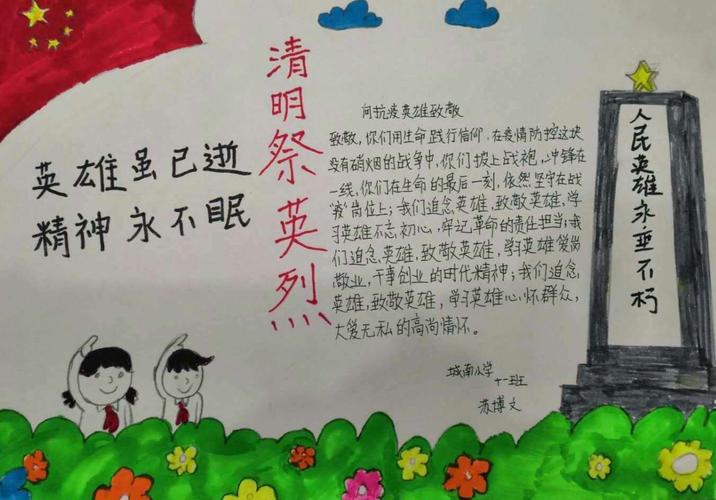 英雄虽已逝
精神永不眠
清明祭英烈
向抗疫英雄致敬
致敬,你们用生命践行信仰,在疫情防控这块
没有硝烟的战争中,你们披上战袍,冲锋在
一线,你们在生命的最后一刻,依然坚守在战
“疫”岗位上;我们追念英雄,致敬英雄,学
习英雄不忘初心,牢记革命的责任担当;我
们追念英雄,致敬英雄,学习英雄爱岗
敬业,干事创业的时代精神;我们追念
英雄,致敬英雄,学习英雄心怀群众,
大爱无私的高尚情怀。
城南小学
十一班
苏博文
人民英雄永垂不朽